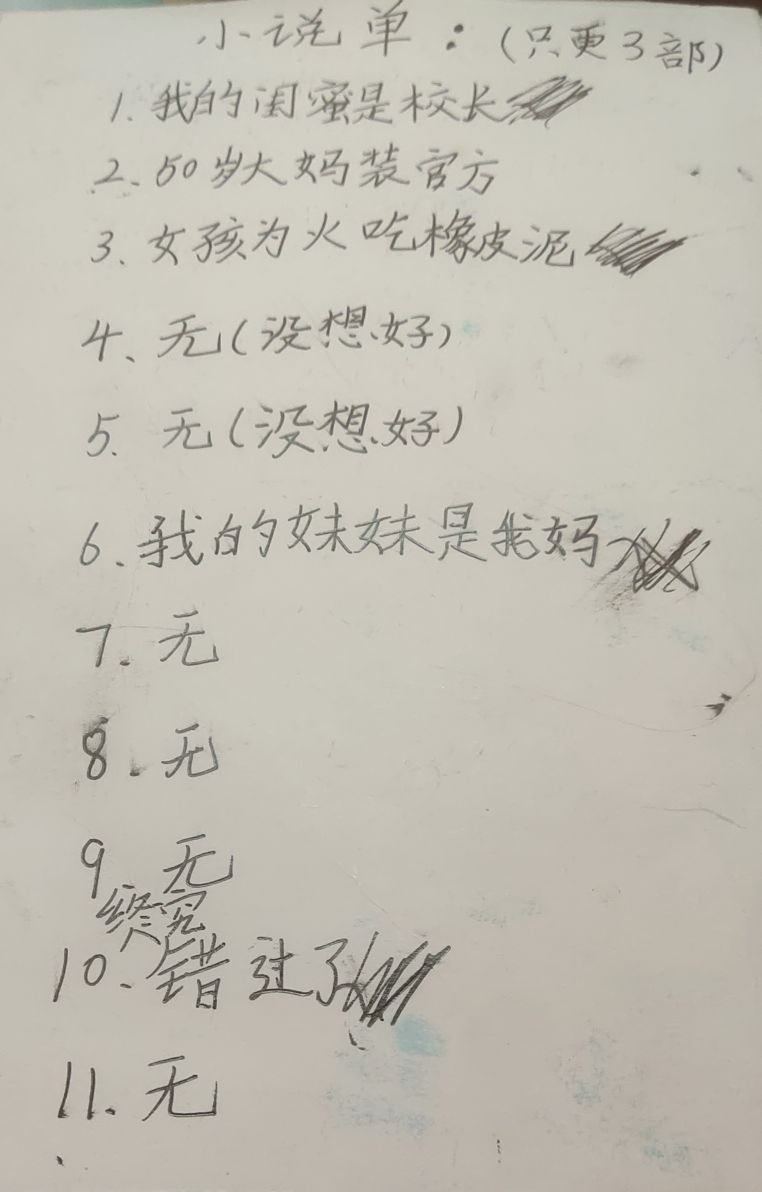 小说单：(只更3部)
1. 我的闺蜜是校长
2. 50岁大妈装官方
3. 女孩为火吃橡皮泥
4、无(没想好)
5. 无(没想好)
6. 我的妹妹是我妈
7. 无
8. 无
9. 无
终究
10. 错过了
11. 无